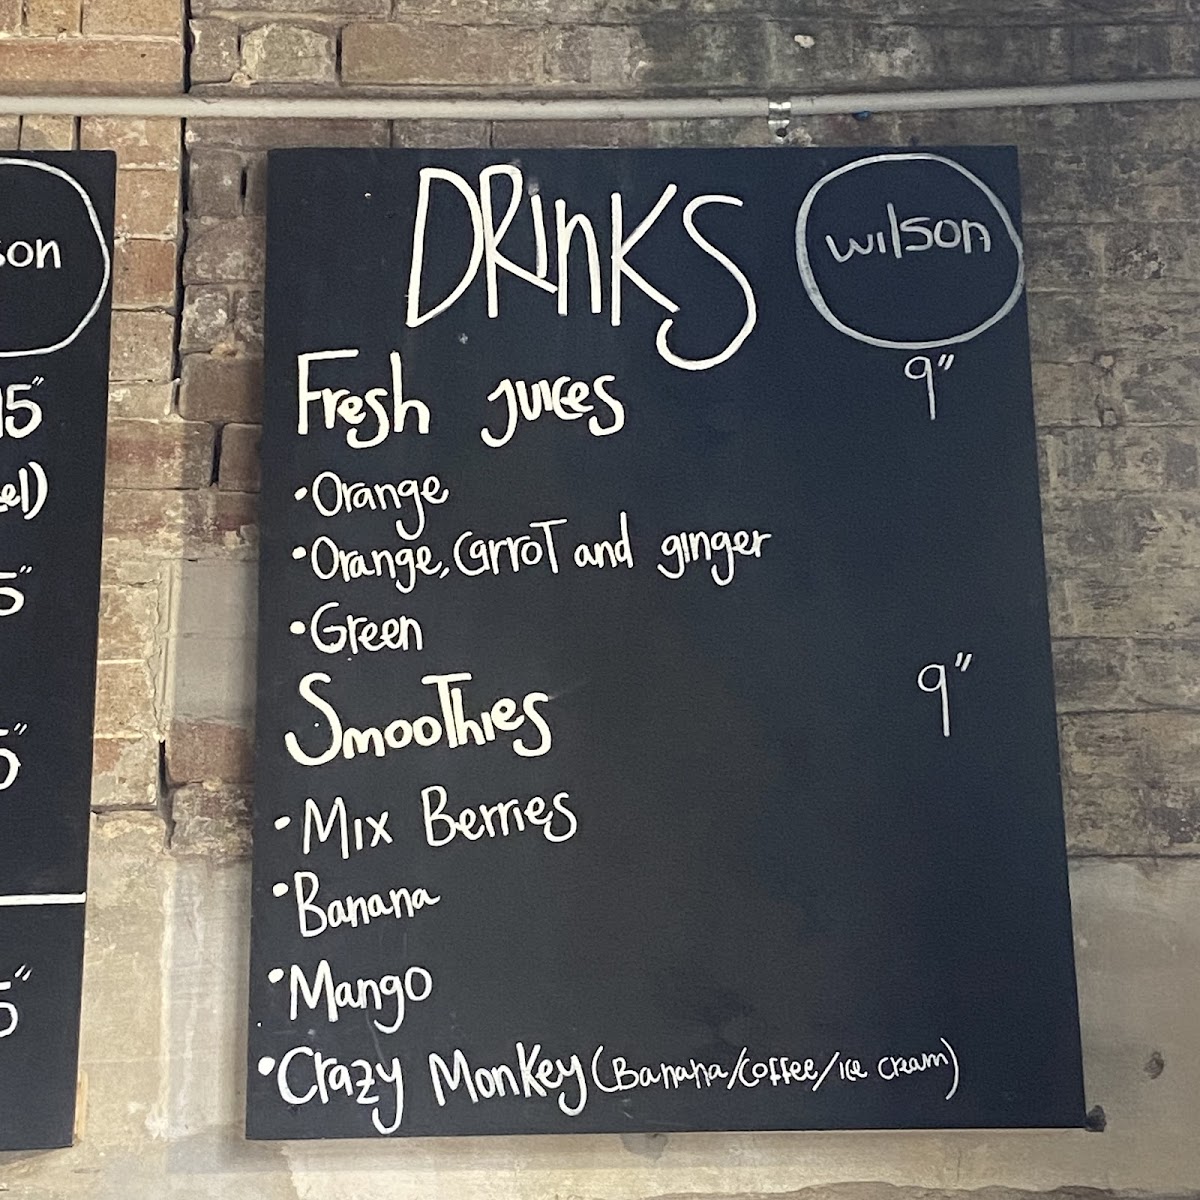 son
15"
el)
5"
5"
5"
DRINKS
wilson
Fresh juices 9"
•Orange
•Orange, Carrot and ginger
•Green
Smoothies 9"
•Mix Berries
•Banana
•Mango
•Crazy Monkey (Banana/Coffee/ice cream)